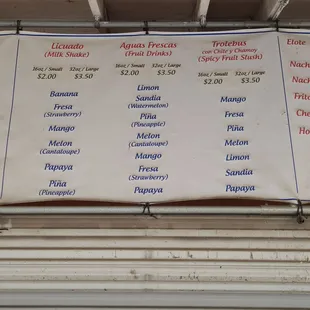 Licuado
(Milk Shake)
16oz / Small 32oz / Large
$2.00 $3.50
Banana
Fresa
(Strawberry)
Mango
Melon
(Cantaloupe)
Papaya
Piña
(Pineapple)
Aguas Frescas
(Fruit Drinks)
16oz / Small 32oz / Large
$2.00 $3.50
Limon
Sandia
(Watermelon)
Piña
(Pineapple)
Melon
(Cantaloupe)
Mango
Fresa
(Strawberry)
Papaya
Trolebus
con Chile y Chamoy
(Spicy Fruit Slush)
16oz / Small 32oz / Large
$2.00 $3.50
Mango
Piña
Fresa
Melon
Limon
Sandia
Papaya
Elote
Nach
Nach
Frito
Che
Ho